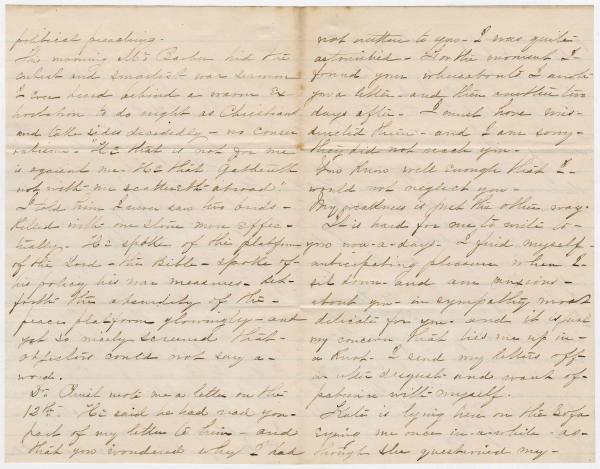 political preaching.
This morning Mr. Barber hid the
cutest and smartest war sermon
I ever heard behind a warm Ex-
hortation to do right as Christians
and take sides decidedly - no conser-
vatism. "He that is not for me
is against me. He that gathereth
not with me scattereth abroad"
I told him I never saw two birds
killed with one stone more effec-
tually. He spoke of the platform
of the Lord - the Bible - spoke of
his policy his war measures set
forth the absurdity of the
peace platform glowingly - and
yet so nicely screened that
objectors could not say a
word.
Dr. wrote me a letter on the
12th. He said he had read you
part of my letter to him - and
that you wondered why I had
not written to you - I was quite
astonished - For the moment I
found your whereabouts I wrote
you a letter - and then another two
days after. I must have mis-
directed them - and I am sorry
they did not reach you.
You know well enough that I
would not neglect you.
My weakness is just the other way.
It is hard for me to write to
you now-a-days. I find myself
anticipating pleasure when I
sit down - and am anxious
about you - in sympathy most
delicate for you. and it is just
my concern that ties me up in
a knot. I send my letters off
in utter disgust and want of
patience with myself.
is lying here on the Sofa
eying me once in a while - as
though she questioned my